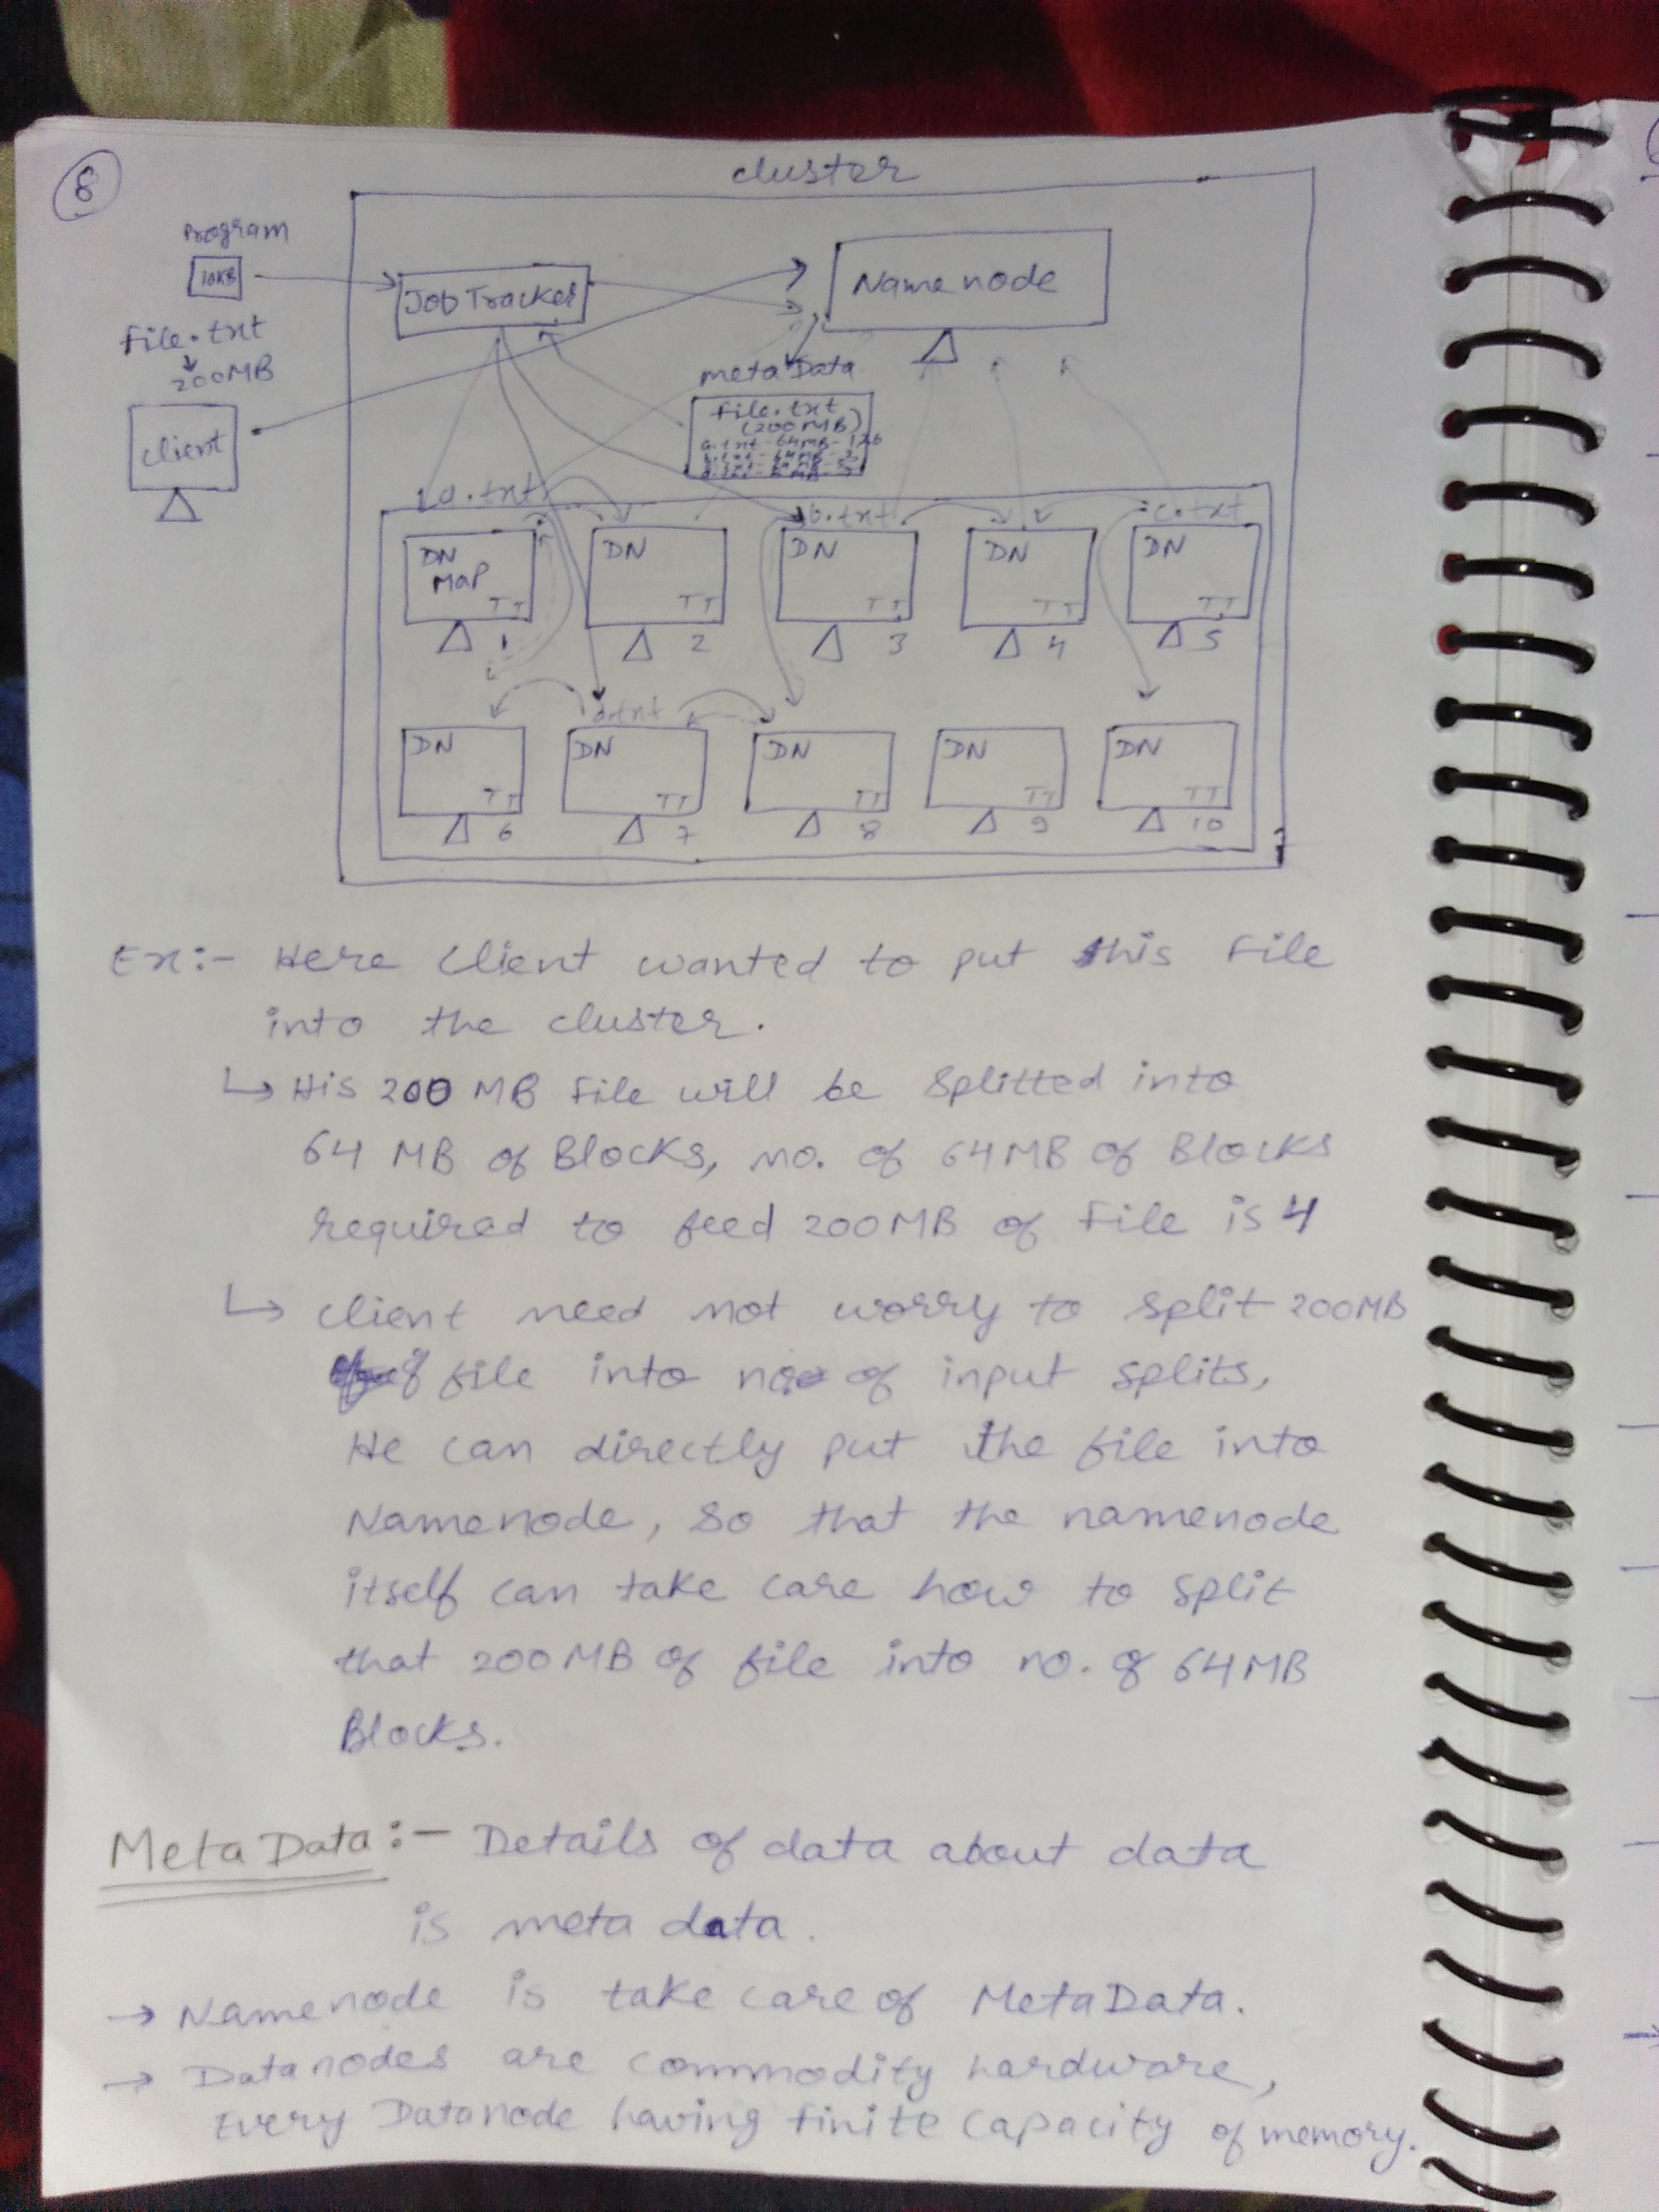 8
cluster
Program
10KB
JobTracker
Namenode
File.txt
200MB
meta Data
client
file.txt
(200MB)
a.txt
b.txt
c.txt
DN
MaP
TT
1
DN
TT
2
DN
TT
3
DN
TT
4
DN
TT
5
d.txt
DN
TT
6
DN
TT
7
DN
TT
8
DN
TT
9
DN
TT
10
Ex:- Here client wanted to put this File
into the cluster.
↳ His 200 MB File will be Splitted into
64 MB of Blocks, no. of 64MB of Blocks
required to feed 200MB of File is 4
↳ client need not worry to split 200MB
file into no. of input splits,
He can directly put the file into
Namenode, so that the namenode
itself can take care how to split
that 200MB of file into no. of 64MB
Blocks.
Meta Data:- Details of data about data
is meta data.
→ Namenode is take care of MetaData.
→ Datanodes are commodity hardware,
Every Datanode having finite capacity of memory.